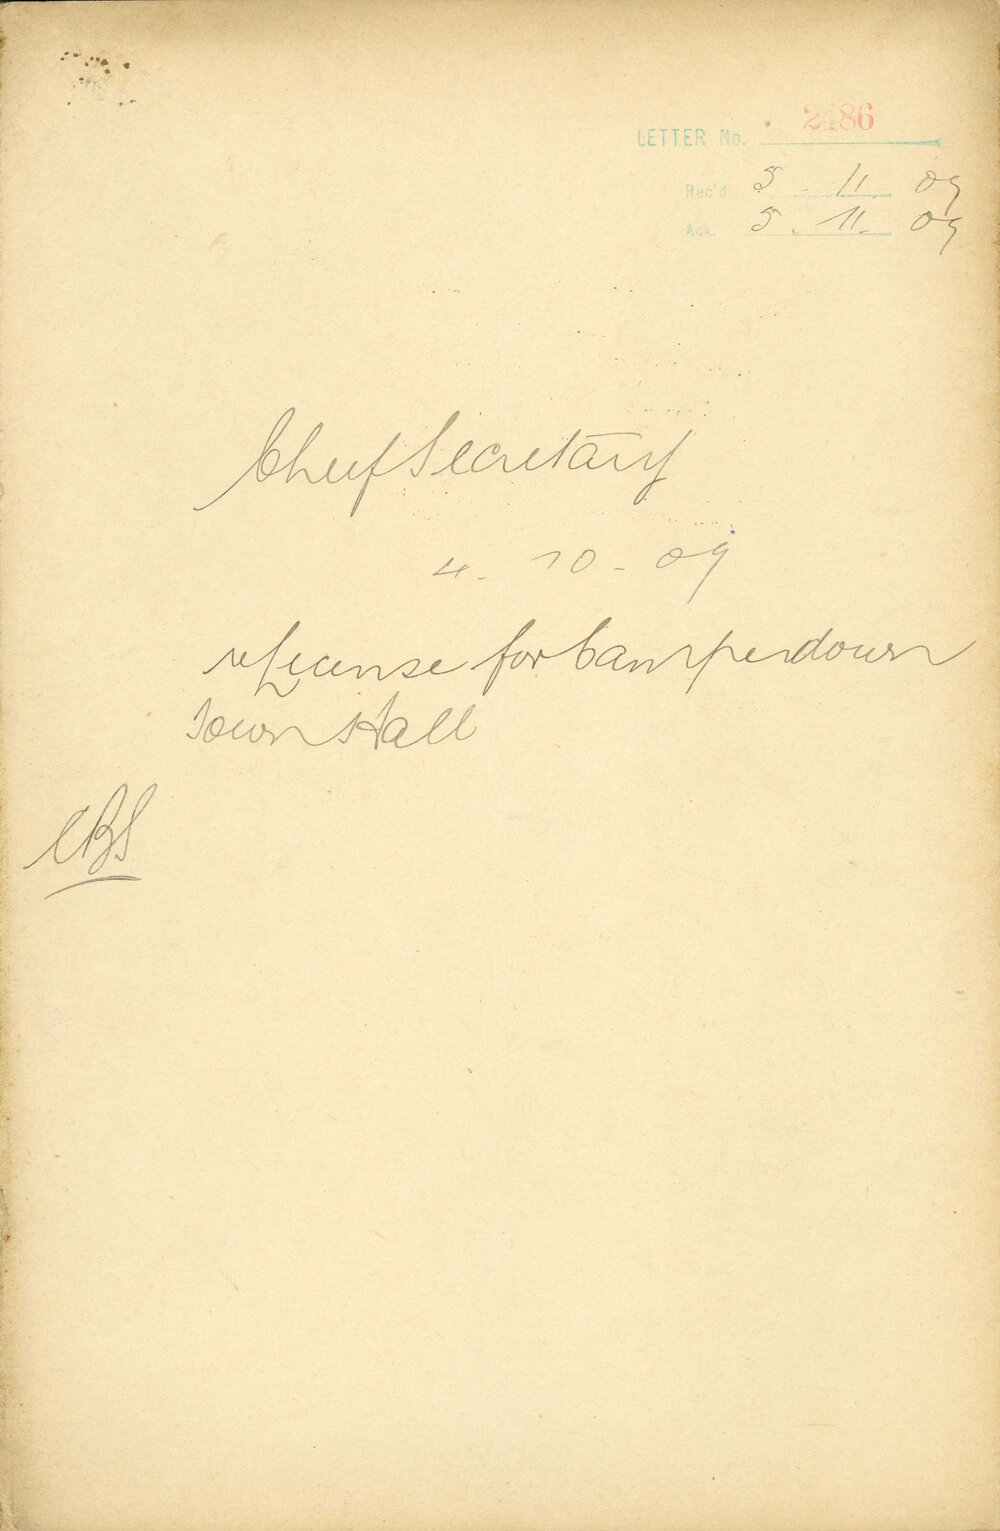 LETTER No. 2486
Rec'd 5 . 11 . 09
Ack. 5 . 11 . 09
Chief Secretary
4 - 10 - 09
re License for Camperdown
Town Hall